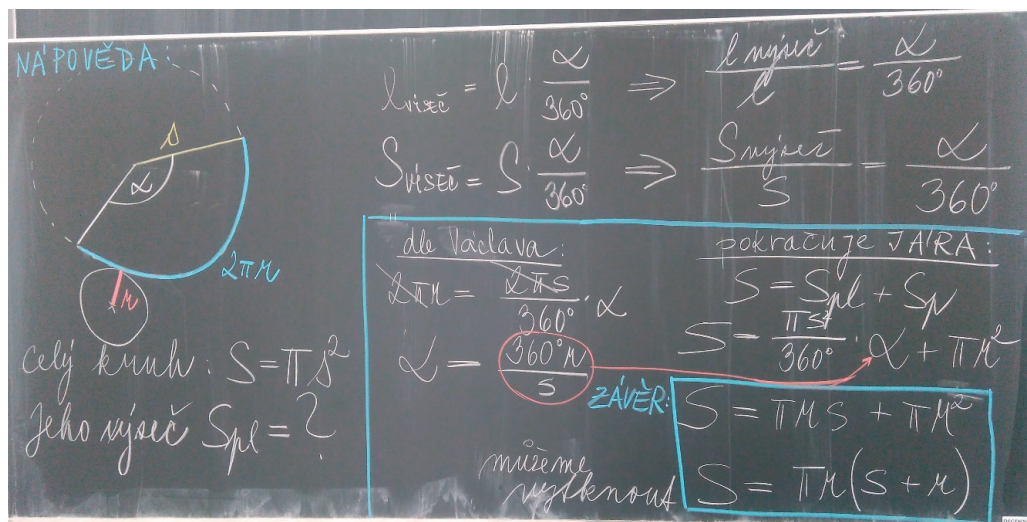 NÁPOVĚDA:
s
α
2πr
r
celý kruh: S = πs²
Jeho výseč Spl = ?
lvýseč = l · α/360° ⇒ lvýseč/l = α/360°
Svýseč = S · α/360° ⇒ Svýseč/S = α/360°
dle Václava:
2πr = 2πs/360° · α
α = 360°r/s
pokračuje JÁRA:
S = Spl + Sp
S = πs²/360° · α + πr²
ZÁVĚR:
S = πrs + πr²
můžeme
vytknout
S = πr(s + r)